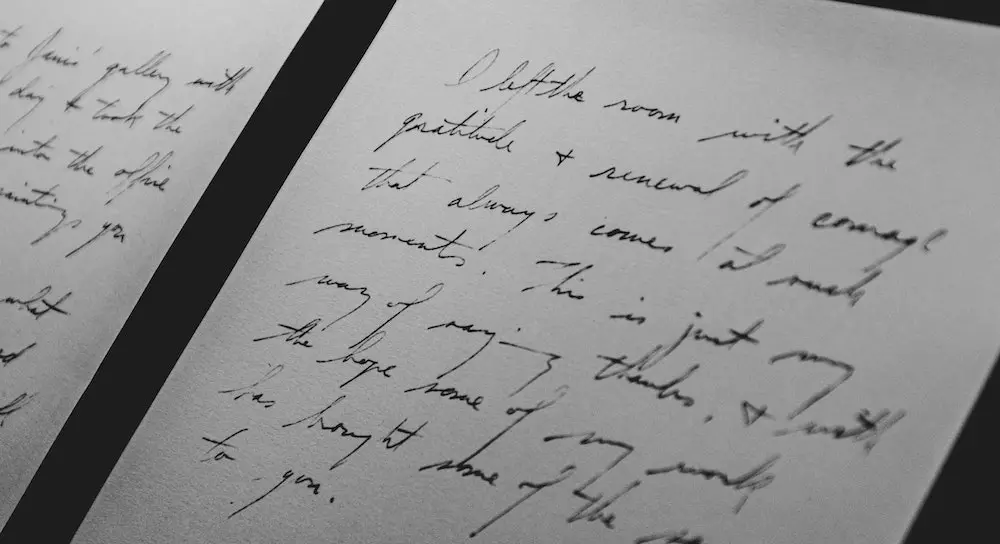 to Janis' gallery with
day + took the
into the office
paintings you
what
I left the room with the
gratitude + renewal of courage
that always comes at such
moments. This is just my
way of saying thanks, + with
the hope some of my work
has brought some of the
to you.